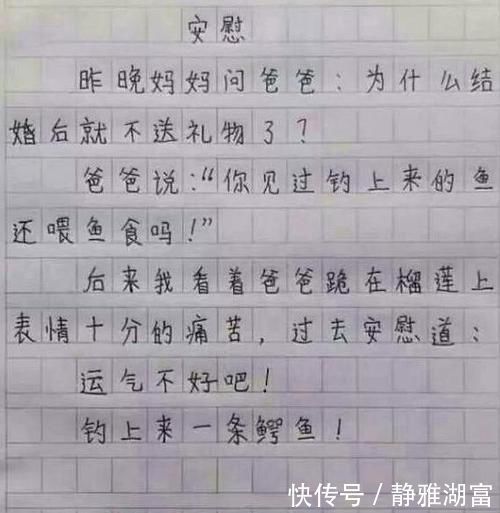 安慰
昨晚妈妈问爸爸：为什么结
婚后就不送礼物了？
爸爸说：“你见过钓上来的鱼
还喂鱼食吗！”
后来我看着爸爸跪在榴莲上
表情十分的痛苦，过去安慰道：
运气不好吧！
钓上来一条鳄鱼！
快传号／静雅湖富